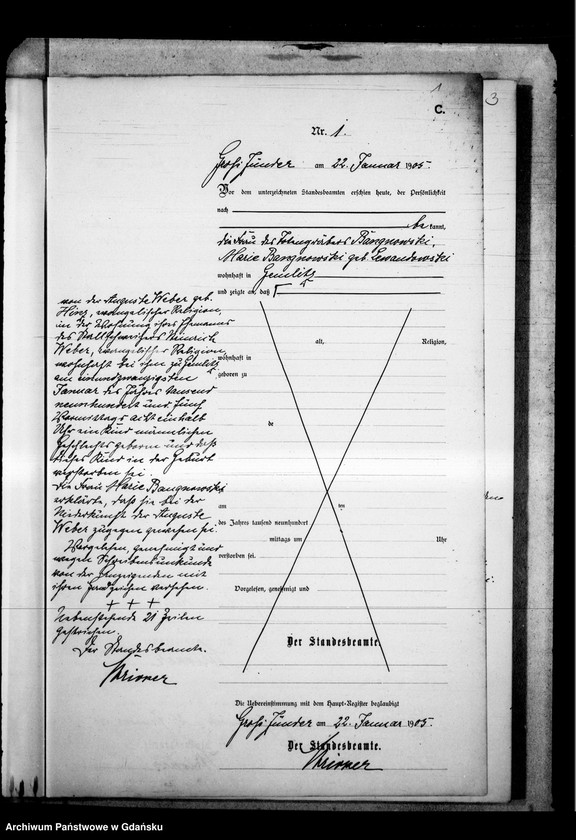 1
C.
3
Nr. 1.
Groß Zünder am 22. Januar 1905.
Vor dem unterzeichneten Standesbeamten erschien heute, der Persönlichkeit
nach
be kannt,
die Frau des Totengräbers Bangnowski,
Marie Bangnowski geb. Lewandowski
wohnhaft in Gemlitz
und zeigte an, daß
von der Auguste Weber geb.
Hinz, evangelischer Religion,
in der Wohnung ihres Ehemanns
des Stallschweizers Heinrich
Weber, evangelischer Religion,
wohnhaft bei ihm zu Gemlitz
am einundzwanzigsten
Januar des Jahres tausend
neunhundert und fünf
Vormittags acht einhalb
Uhr ein Kind männlichen
Geschlechts geboren und daß
dieses Kind in der Geburt
verstorben sei.
Die Frau Marie Bangnowski
erklärte, daß sie bei der
Niederkunft der Auguste
Weber zugegen gewesen sei.
Vorgelesen, genehmigt und
wegen Schreibensunkunde
von der Anzeigenden mit
ihrem Handzeichen versehen.
+ + +
Nebenstehende 21 Zeilen
gestrichen.
Der Standesbeamte.
alt, Religion,
wohnhaft in
geboren zu
de
am ten
des Jahres tausend neunhundert
mittags um Uhr
verstorben sei.
Vorgelesen, genehmigt und
Der Standesbeamte
Die Uebereinstimmung mit dem Haupt-Register beglaubigt
Groß Zünder am 22. Januar 1905.
Der Standesbeamte.
Archiwum Państwowe w Gdańsku